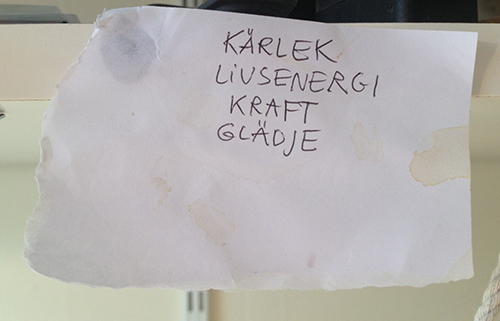 KÄRLEK
LIVSENERGI
KRAFT
GLÄDJE